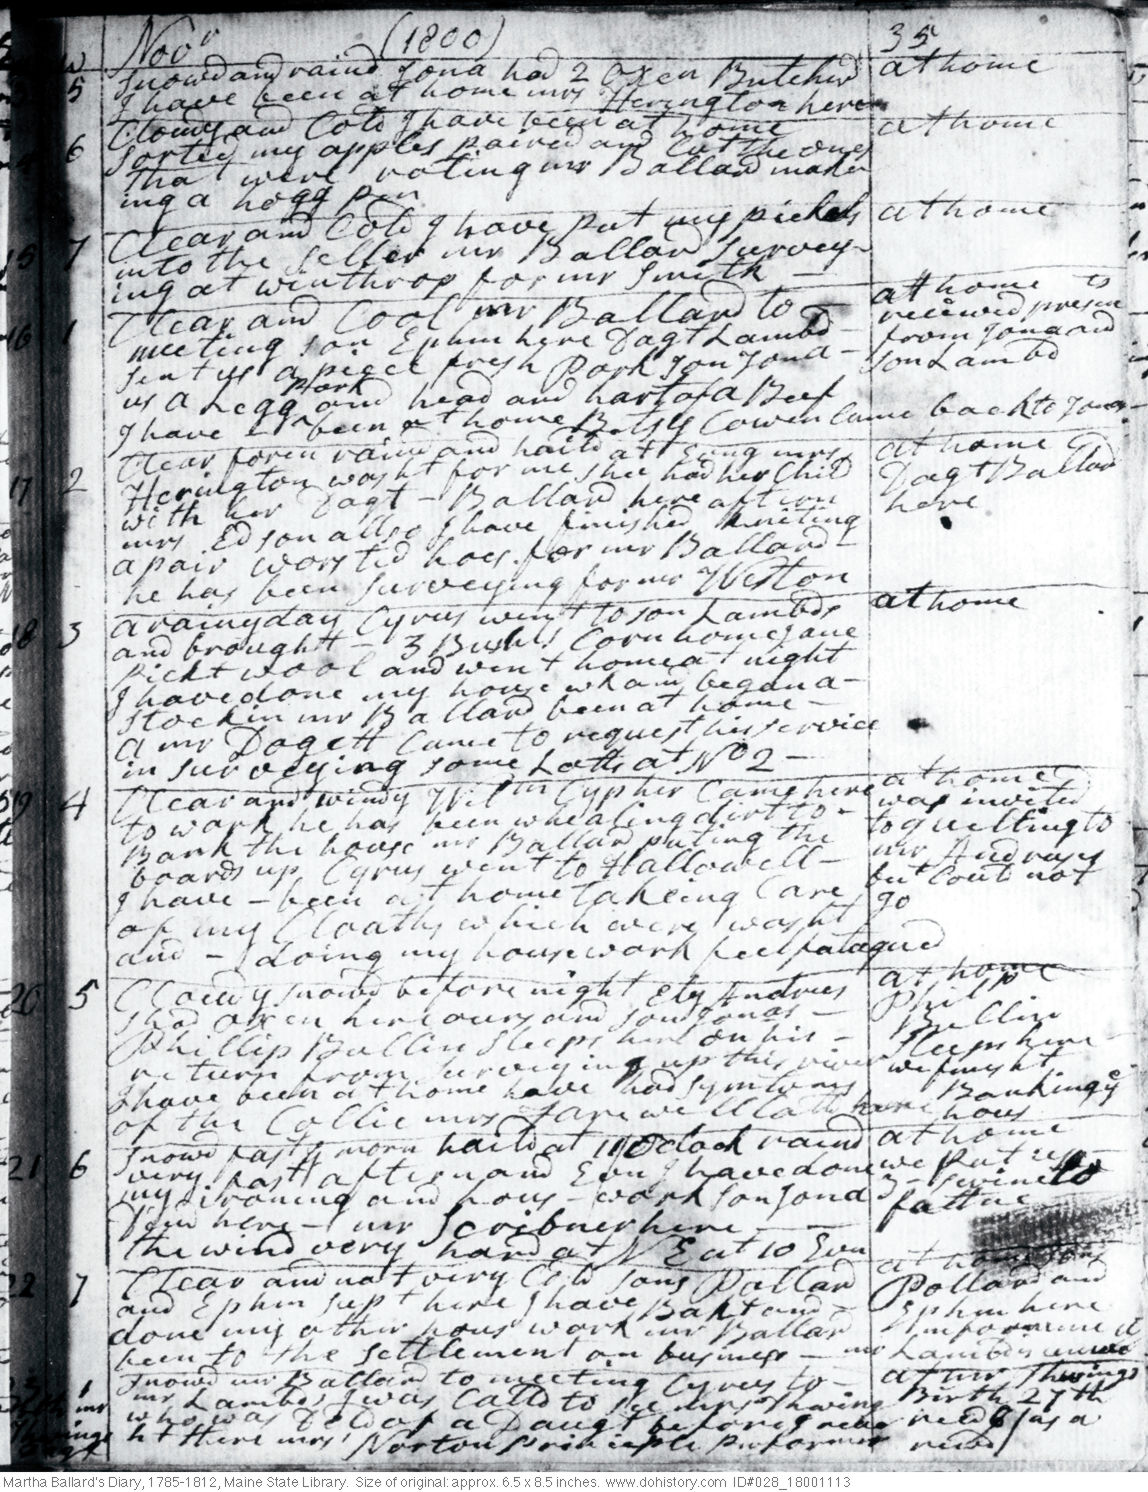 Novr (1800) 35
5 Snowd and raind Jona had 2 Oxen Butchrd at home
I have been at home mrs Herington here
6 Cloudy and Cold I have been at home at home
sorted my apples paired and Cut the ones
that were roting mr Ballard makeing
ing a hogg pen
7 Clear and Cold I have put my pickels at home
into the Seller mr Ballard Survey-
ing at Winthrop for mr Smith
16 1 Clear and Cool mr Ballard to at home
meeting son Ephm here Dagt Lambd received presents
sent us a piece fresh Pork Son Jona from Jona and
us a Legg Pork and head and hart of a Beef son Lambd
I have been at home Betsy Cowen Came back to Jonas
17 2 Clear foren raind and haild at Evng mrs at home
Herington washt for me shee had her Child Dagt Ballard
with her Dagt Ballard here aftern here
mrs Edson allso I have finished kniting
a pair worsted hoes for mr Ballard
he has been surveying for mr Weston
18 3 a rainy day Cyrus went to son Lambds at home
and brought 3 Bushls Corn home Jane
Pickt wool and went home at night
I have done my house wk and began a
Stockin mr Ballard been at home
a mr Dogett Came to request his service
in surveying some Lotts at No 2
19 4 Clear and windy Wilm Cypher Came here at home
to work he has been whealing dirt to was invited
Bank the house mr Ballard puting the to quilting to
boards up Cyrus went to Hallowell mr Andrews
I have been at home takeing Care but Could not
of my Cloaths which were washt go
and doing my housework feel fatagued
20 5 Cloudy snowd before night Ely Andrus at home
had oxen here ours and son Jonas Philip
Phillip Bullin Sleeps here on his Bullin
return from surveying up this river Sleeps here
I have been at home have had symtoms we finisht Banking
of the Collic mrs Farewell Calld here hous
21 6 Snowd fast morn haild at 11 O Clock raind at home
very fast aftern and Evng I have done we put up
my ironing and hous work son Jona 3 swine to
Jew here mr Scribner here fatne
the wind very hard at N E at 10 Evn
22 7 Clear and not very Cold sons Pollard at home sons
and Ephm supt here I have Bakt and Pollard and
done my other hous work mr Ballard Ephm here
been to the Settlement on business
1 Snowd mr Ballard to meeting Cyrus to at mr Thwings
mr Lambds I was Calld to see mrs Thwing Birth 27th
who was Deld of a Daugt before I reacht
there mrs Norton Principle performer